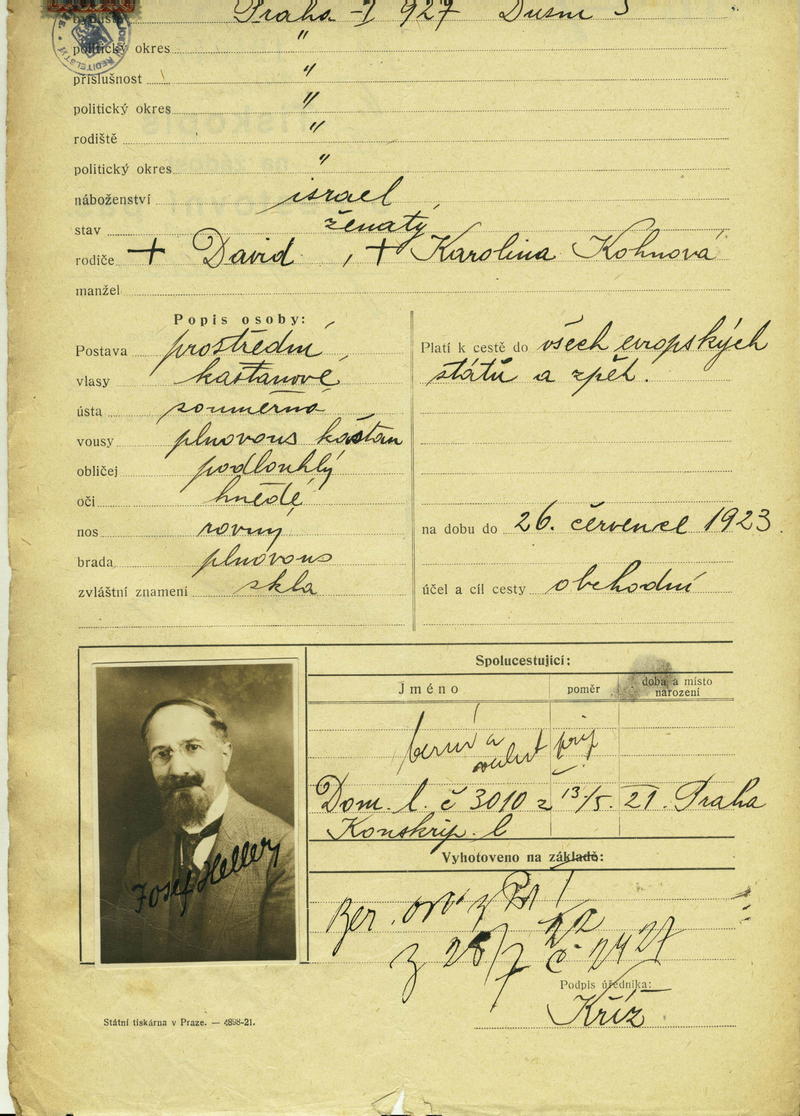 bydliště Praha - I 927 Dušní 5
politický okres "
příslušnost "
politický okres "
rodiště "
politický okres "
náboženství israel
stav ženatý
rodiče + David, + Karolina Kohnová
manžel
Popis osoby:
Postava prostřední
vlasy kaštanové
ústa souměrná
vousy plnovous kaštan
obličej podlouhlý
oči hnědé
nos rovný
brada plnovous
zvláštní znamení skla
Platí k cestě do všech evropských
států a zpět.
na dobu do 26. července 1923
účel a cíl cesty obchodní
Spolucestující:
Jméno poměr doba a místo
narození
Dom. l. č 3010 z 13/5. 21. Praha
Konskrip. l
Vyhotoveno na základě:
z 28/7 č 2427
Podpis úředníka:
Kříž
Josef Heller
Státní tiskárna v Praze. — 4898-21.